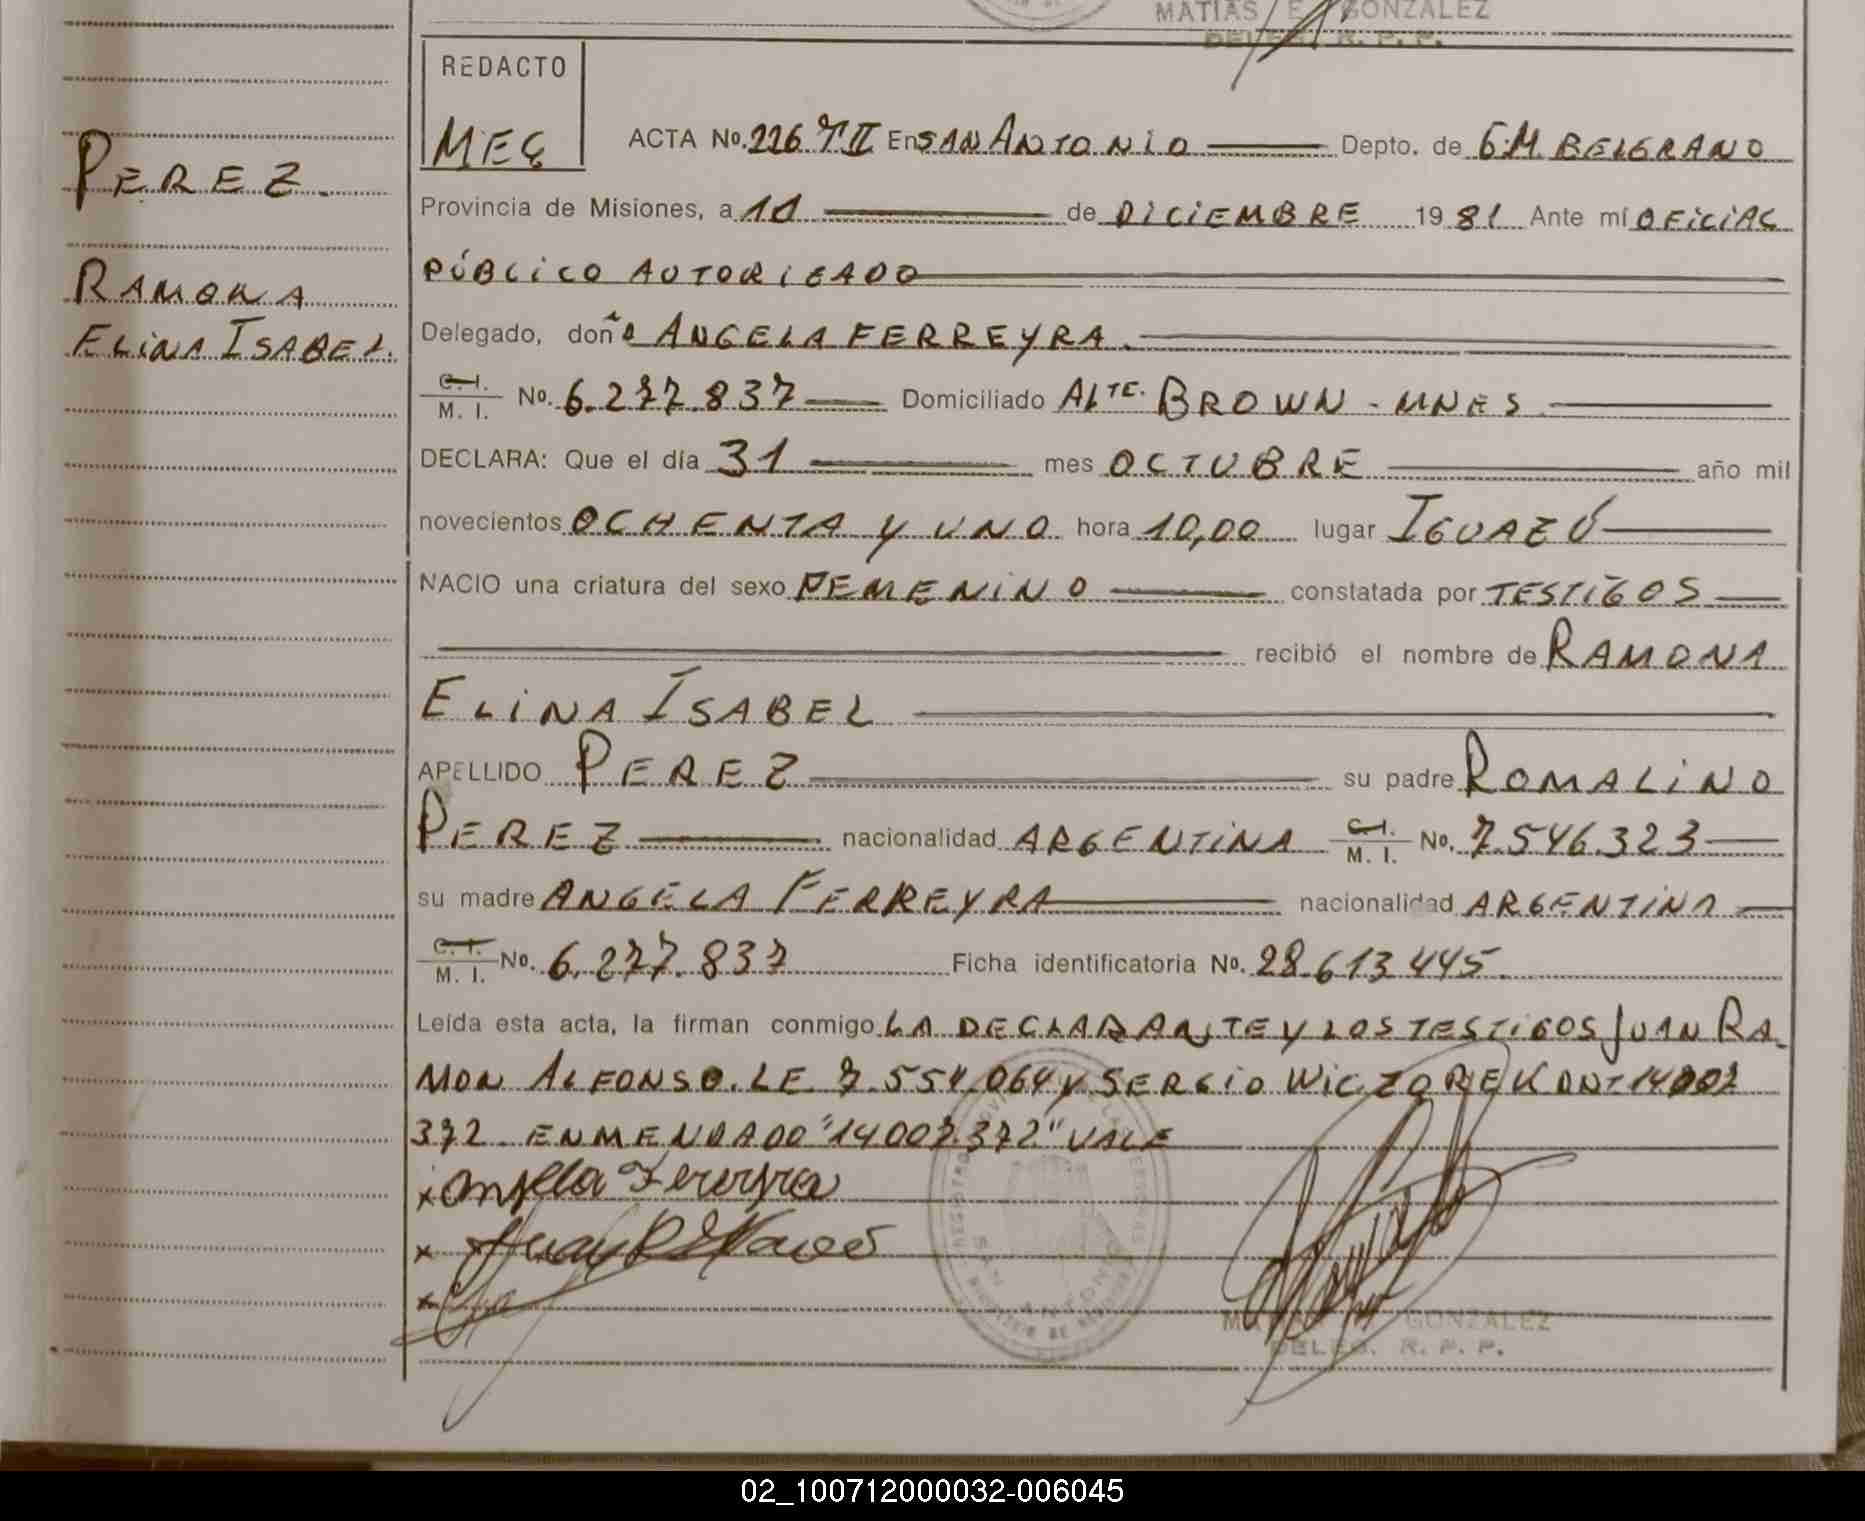 MATIAS E. GONZALEZ
DELEG. R. P. P.
REDACTO
MEG
PEREZ.
RAMONA
ELINA ISABEL.
ACTA No. 226 TII En SAN ANTONIO Depto. de G.M. BELGRANO
Provincia de Misiones, a 10 de DICIEMBRE 1981 Ante mí OFICIAL
PÚBLICO AUTORIZADO
Delegado, doña ANGELA FERREYRA.
C. I.
M. I. No. 6.277.837 Domiciliado ALTE. BROWN - MNES
DECLARA: Que el día 31 mes OCTUBRE año mil
novecientos OCHENTA Y UNO hora 10,00 lugar IGUAZÚ
NACIO una criatura del sexo FEMENINO constatada por TESTIGOS
recibió el nombre de RAMONA
ELINA ISABEL
APELLIDO PEREZ su padre ROMALINO
PEREZ nacionalidad ARGENTINA C. I. M. I. No. 7.546.323
su madre ANGELA FERREYRA nacionalidad ARGENTINA
C. I. M. I. No. 6.277.837 Ficha identificatoria No. 28.613.445.
Leída esta acta, la firman conmigo LA DECLARANTE Y LOS TESTIGOS JUAN RA
MON ALFONSO. LE 7.554.064 Y SERGIO WICZOREK DNI 14007
372. ENMENDADO "14.007.372" VALE
x Angela Ferreyra
x
x
SAN ANTONIO
GONZALEZ
DELEG. R. P. P.
02_100712000032-006045